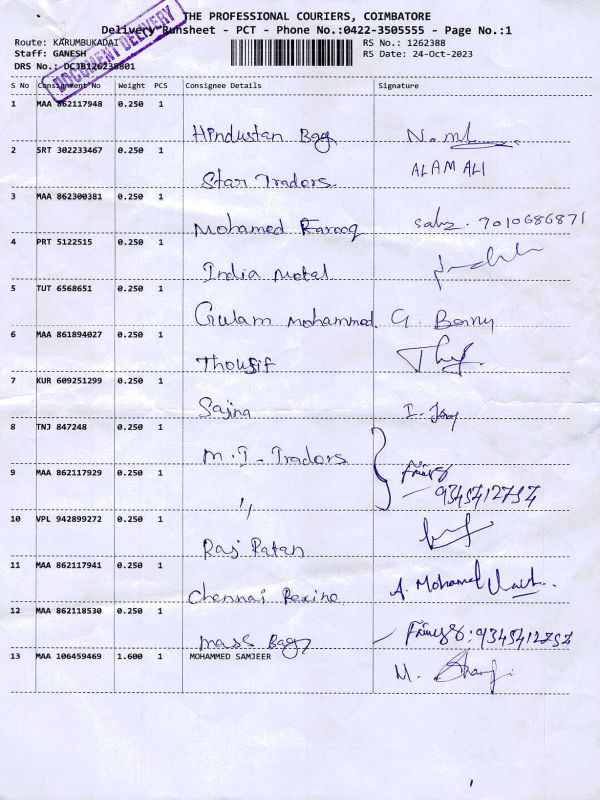 THE PROFESSIONAL COURIERS, COIMBATORE
Delivery Runsheet - PCT - Phone No.:0422-3505555 - Page No.:1
Route: KARUMBUKADAI
RS No.: 1262388
Staff: GANESH
RS Date: 24-Oct-2023
DRS No.: DCJB126238801
DOCUMENT DELIVERY
S No Consignment No Weight PCS Consignee Details Signature
1 MAA 862117948 0.250 1
Hindustan Bag
2 SRT 302233467 0.250 1
Star Traders ALAM ALI
3 MAA 862300381 0.250 1
Mohamed Farooq 7010686871
4 PRT 5122515 0.250 1
India Metal
5 TUT 6568651 0.250 1
Gulam Mohammed G.
6 MAA 861894027 0.250 1
Thoufif
7 KUR 609251299 0.250 1
Sajina I.
8 TNJ 847248 0.250 1
M.I. Traders
9 MAA 862117929 0.250 1
9345412757
〃
10 VPL 942899272 0.250 1
Raj Ratan
11 MAA 862117941 0.250 1
Chennai Rexine A. Mohamed
12 MAA 862118530 0.250 1
Mass Bags : 9345412757
13 MAA 106459469 1.600 1 MOHAMMED SAMJEER
M.